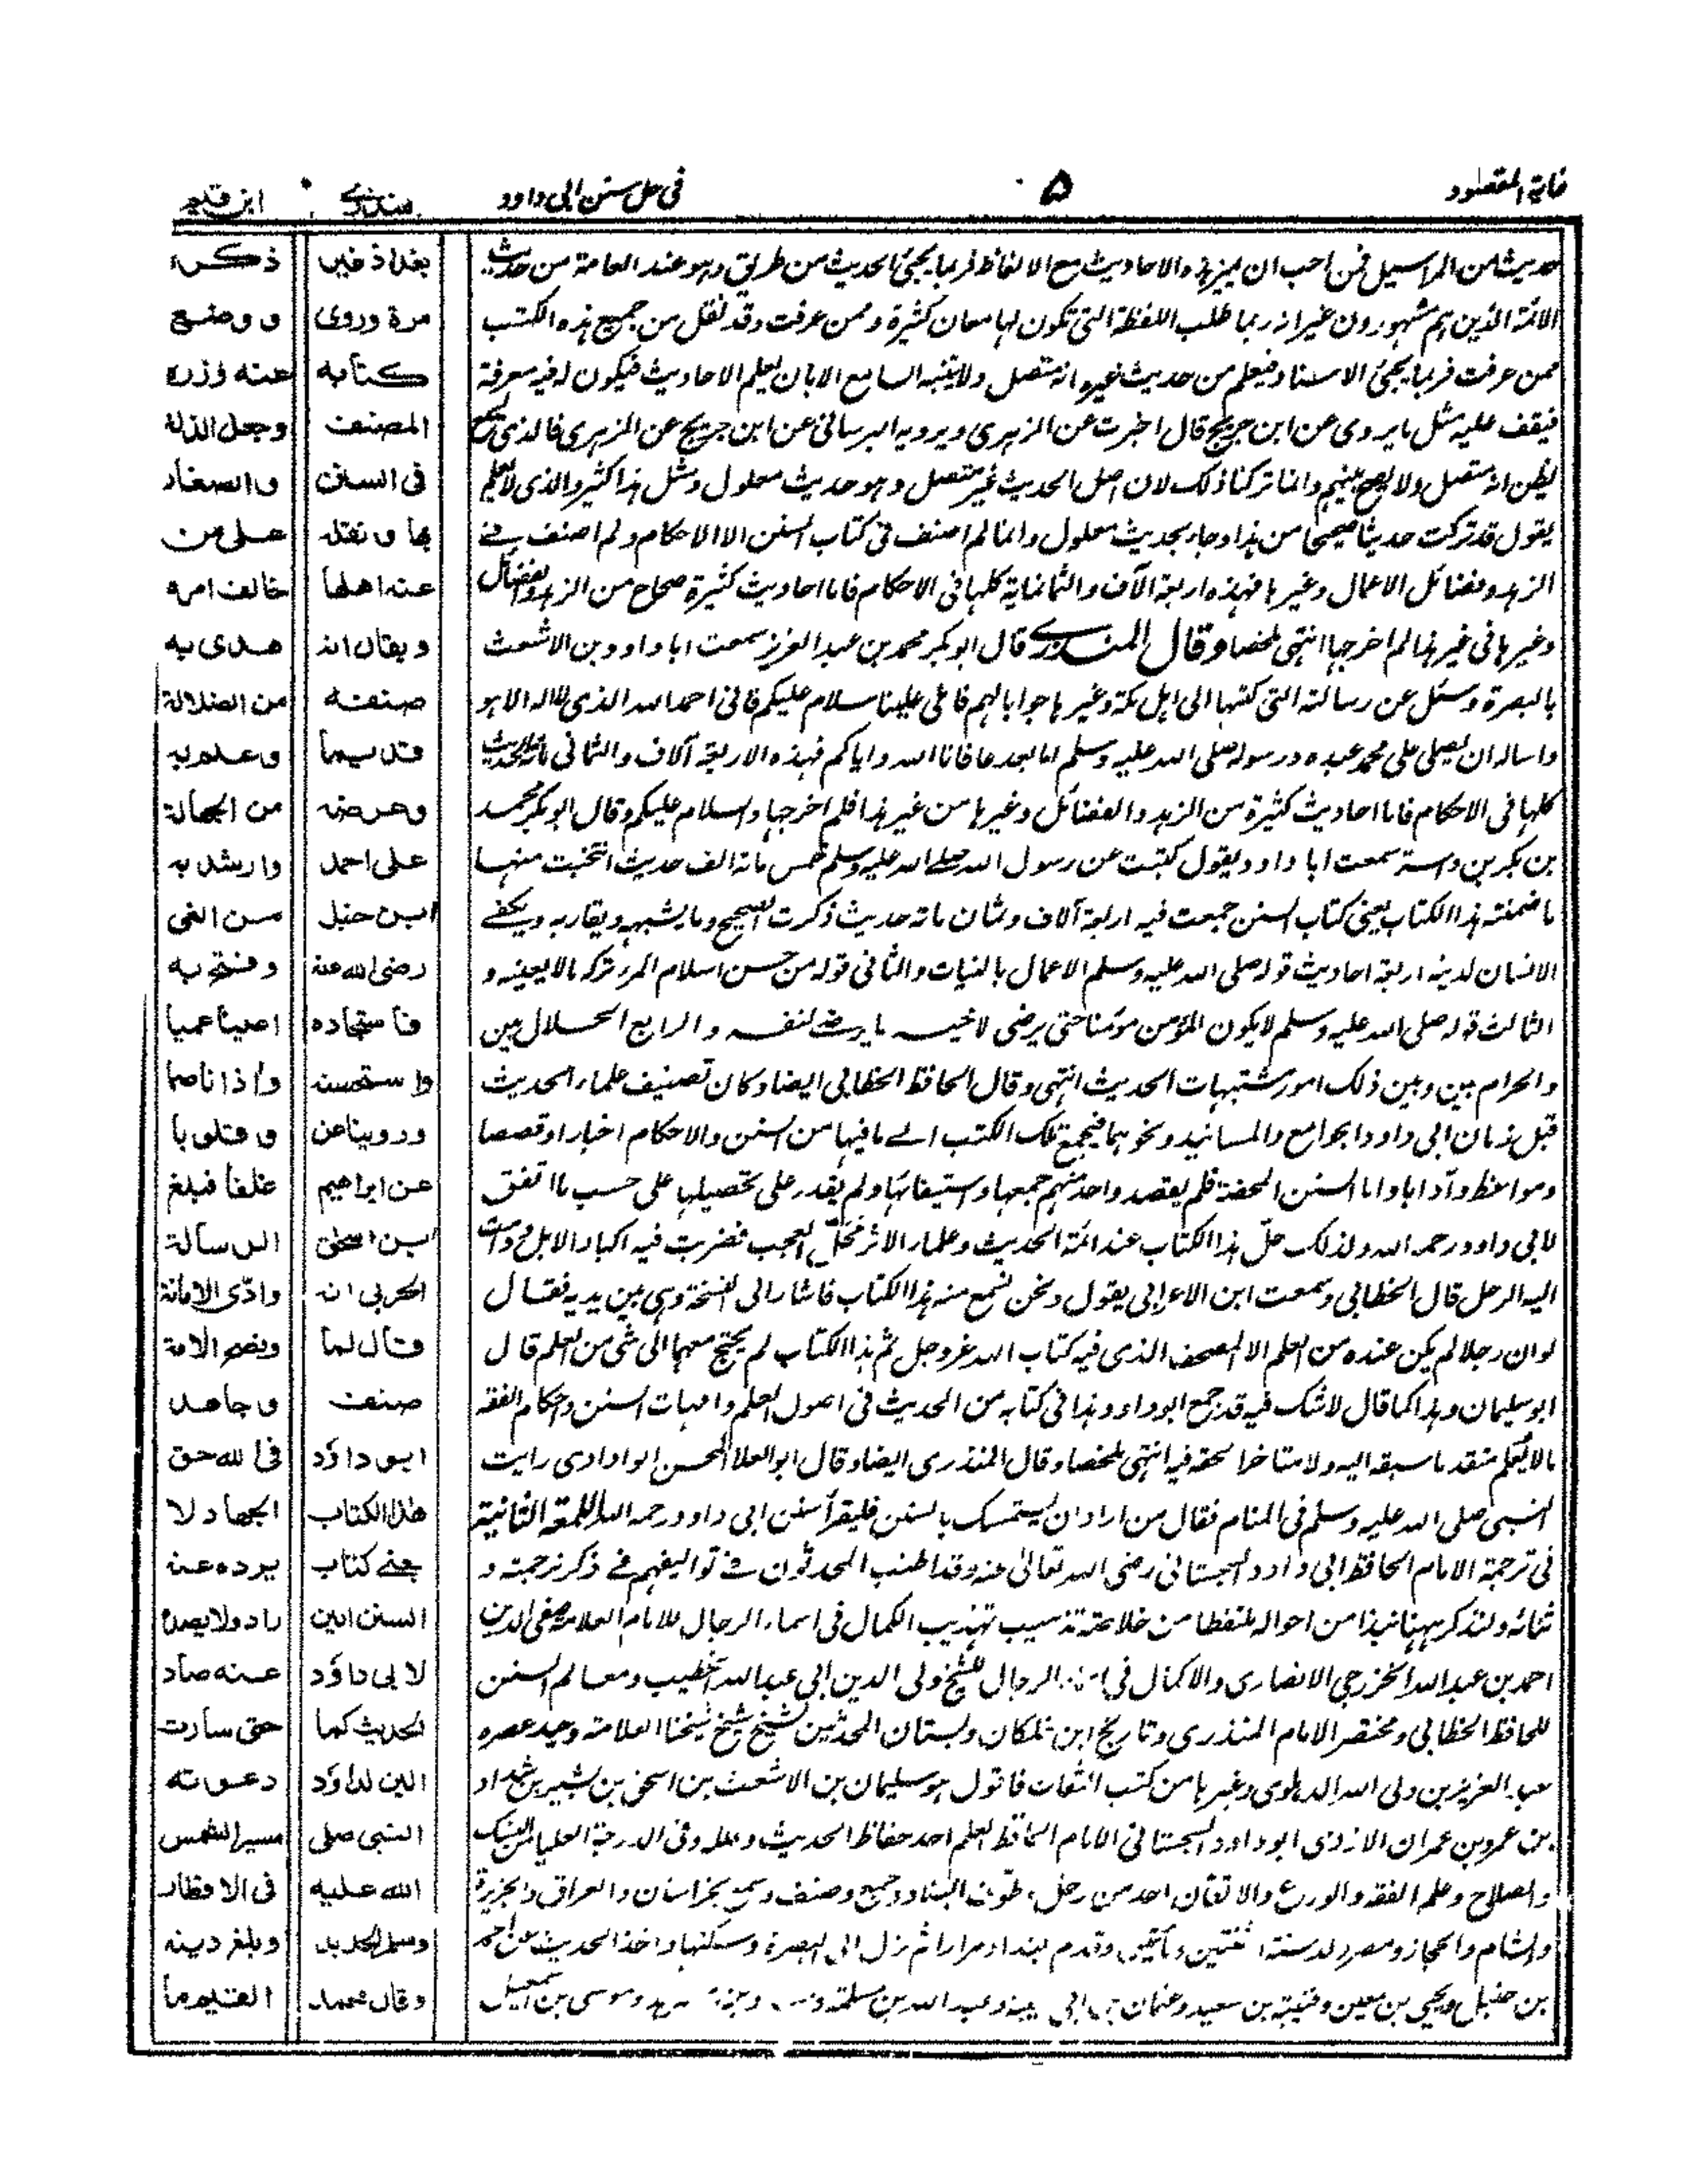 غاية المقصود
۵
فى حل سنن ابى داود
منذرى
ابن قيم
حديثا من المراسيل فمن احب ان يميز هذه الاحاديث مع الالفاظ فربما يجئ الحديث من طريق وهو عند العامة من حديث
الائمة الذين هم مشهورون غير انه ربما طلب اللفظة التى تكون لها معان كثيرة وممن عرفت وقد نقل من جميع هذه الكتب
ممن عرفت فربما يجئ الاسناد فيعلم من حديث غيره انه متصل ولا يتنبه السامع الا بان يعلم الاحاديث فيكون له فيه معرفة
فيقف عليه مثل ما يروى عن ابن جريج قال اخبرت عن الزهرى ويرويه البرسانى عن ابن جريج عن الزهرى فالذى يسمع
يظن انه متصل ولا يصح بينهم وانما تركنا ذلك لان اصل الحديث غير متصل وهو حديث معلول ومثل هذا كثير والذى لا يعلم
يقول قد تركت حديثا صحيحا من هذا وجاء بحديث معلول وانما لم اصنف فى كتاب السنن الا الاحكام ولم اصنف فى
الزهد وفضائل الاعمال وغيرها فهذه اربعة آلاف والثمانماية كلها فى الاحكام فاما احاديث كثيرة صحاح من الزهد والفضائل
وغيرها فى غير هذا لم اخرجها انتهى ملخصا وقال المنذرى قال ابو بكر محمد بن عبد العزيز سمعت ابا داود بن الاشعث
بالبصرة وسئل عن رسالته التى كتبها الى اهل مكة وغيرها جوابا لهم فاملى علينا سلام عليكم فانى احمد الله الذى لا اله الا هو
واساله ان يصلى على محمد عبده ورسوله صلى الله عليه وسلم اما بعد عافانا الله واياكم فهذه الاربعة آلاف والثمانى مائة الحديث
كلها فى الاحكام فاما احاديث كثيرة من الزهد والفضائل وغيرها من غير هذا فلم اخرجها والسلام عليكم وقال ابو بكر محمد
بن بكر بن داسة سمعت ابا داود يقول كتبت عن رسول الله صلى الله عليه وسلم خمس مائة الف حديث انتخبت منها
ما ضمنته هذا الكتاب يعنى كتاب السنن جمعت فيه اربعة آلاف وثمان مائة حديث ذكرت الصحيح وما يشبهه ويقاربه ويكفى
الانسان لدينه اربعة احاديث قوله صلى الله عليه وسلم الاعمال بالنيات والثانى قوله من حسن اسلام المرء تركه ما لا يعنيه و
الثالث قوله صلى الله عليه وسلم لا يكون المؤمن مؤمنا حتى يرضى لاخيه ما يرضى لنفسه والرابع الحلال بين
والحرام بين وبين ذلك امور مشتبهات الحديث انتهى وقال الحافظ الخطابى ايضا وكان تصنيف علماء الحديث
قبل زمان ابى داود الجوامع والمسانيد ونحوهما فيجمع تلك الكتب الى ما فيها من السنن والاحكام اخبارا وقصصا
ومواعظ وآدابا واما السنن المحضة فلم يقصد واحد منهم جمعها واستيفائها ولم يقدر على تحصيلها على حسب ما اتفق
لابى داود رحمه الله ولذلك حل هذا الكتاب عند ائمة الحديث وعلماء الاثر محل العجب فضربت فيه اكباد الابل ودامت
اليه الرحل قال الخطابى وسمعت ابن الاعرابى يقول ونحن نسمع منه هذا الكتاب فاشار الى النسخة وهى بين يديه فقال
لو ان رجلا لم يكن عنده من العلم الا المصحف الذى فيه كتاب الله عز وجل ثم هذا الكتاب لم يحتج معهما الى شى من العلم قال
ابو سليمان وهذا كما قال لا شك فيه قد جمع ابو داود هذا فى كتابه من الحديث فى اصول العلم وامهات السنن واحكام الفقه
ما لا يعلم متقدما سبقه اليه ولا متاخرا لحقه فيه انتهى ملخصا وقال المنذرى ايضا وقال ابو العلا المحسن الوادادى رايت
النبى صلى الله عليه وسلم فى المنام فقال من اراد ان يستمسك بالسنن فليقرأ سنن ابى داود رحمه الله اللمعة الثانية
فى ترجمة الامام الحافظ ابى داود السجستانى رضى الله تعالى عنه وقد اطنب المحدثون فى تواليفهم فى ذكر ترجمته و
ثنائه ولنذكر ههنا نبذا من احواله ملتقطا من خلاصة تذهيب تهذيب الكمال فى اسماء الرجال للامام العلامة صفى الدين
احمد بن عبد الله الخزرجى الانصارى والاكمال فى اسماء الرجال للشيخ ولى الدين ابى عبد الله الخطيب ومعالم السنن
للحافظ الخطابى ومختصر الامام المنذرى وتاريخ ابن خلكان وبستان المحدثين لشيخ شيخ شيخنا العلامة وحيد عصره
عبد العزيز بن ولى الله الدهلوى وغيرها من كتب الثقات فاقول هو سليمان بن الاشعث بن اسحق بن بشير بن شداد
بن عمرو بن عمران الازدى ابو داود السجستانى الامام الحافظ العلم احد حفاظ الحديث وعلله وفى الدرجة العليا من النسك
والصلاح وعلم الفقه والورع والاتقان احد من رحل وطوف البلاد وجمع وصنف وسمع بخراسان والعراق والجزيرة
والشام والحجاز ومصر ولد سنة اثنتين ومأتين وقدم بغداد مرارا ثم نزل الى البصرة وسكنها واخذ الحديث عن احمد
بن حنبل ويحيى بن معين وقتيبة بن سعيد وعثمان بن ابى شيبة وعبد الله بن مسلمة وموسى بن اسمعيل
بغداذ غير
مرة وروى
كتابه
المصنف
فى السنن
بها ونقله
عنه اهلها
ويقال انه
صنفه
قديما
وعرضه
على احمد
ابن حنبل
رضى الله عنه
فاستجاده
واستحسنه
وروينا عن
عن ابراهيم
ابن اسحق
الحربى انه
قال لما
صنف
ابو داؤد
هذا الكتاب
يعنى كتاب
السنن الين
لابى داؤد
الحديث كما
الين لداؤد
النبى صلى
الله عليه
وسلم الحديد
وقال محمد
ذكره
ووضع
عنه وزره
وجعل الذلة
والصغار
على من
خالف امره
هدى به
من الضلالة
وعلم به
من الجهالة
وارشد به
من الغى
وفتح به
اعينا عميا
وآذانا صما
وقلوبا
غلفا فبلغ
الرسالة
وادى الامانة
ونصح الامة
وجاهد
فى الله حق
الجهاد لا
يرده عنه
راد ولا يصده
عنه صاد
حتى سارت
دعوته
مسير الشمس
فى الاقطار
وبلغ دينه
القيم ما